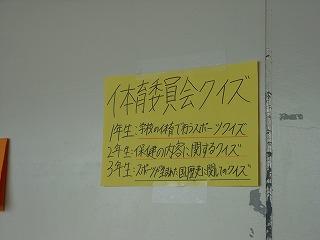 体育委員会クイズ
1年生:学校の体育で行うスポーツクイズ
2年生:保健の内容に関するクイズ
3年生:スポーツが生まれた国、歴史に関してのクイズ